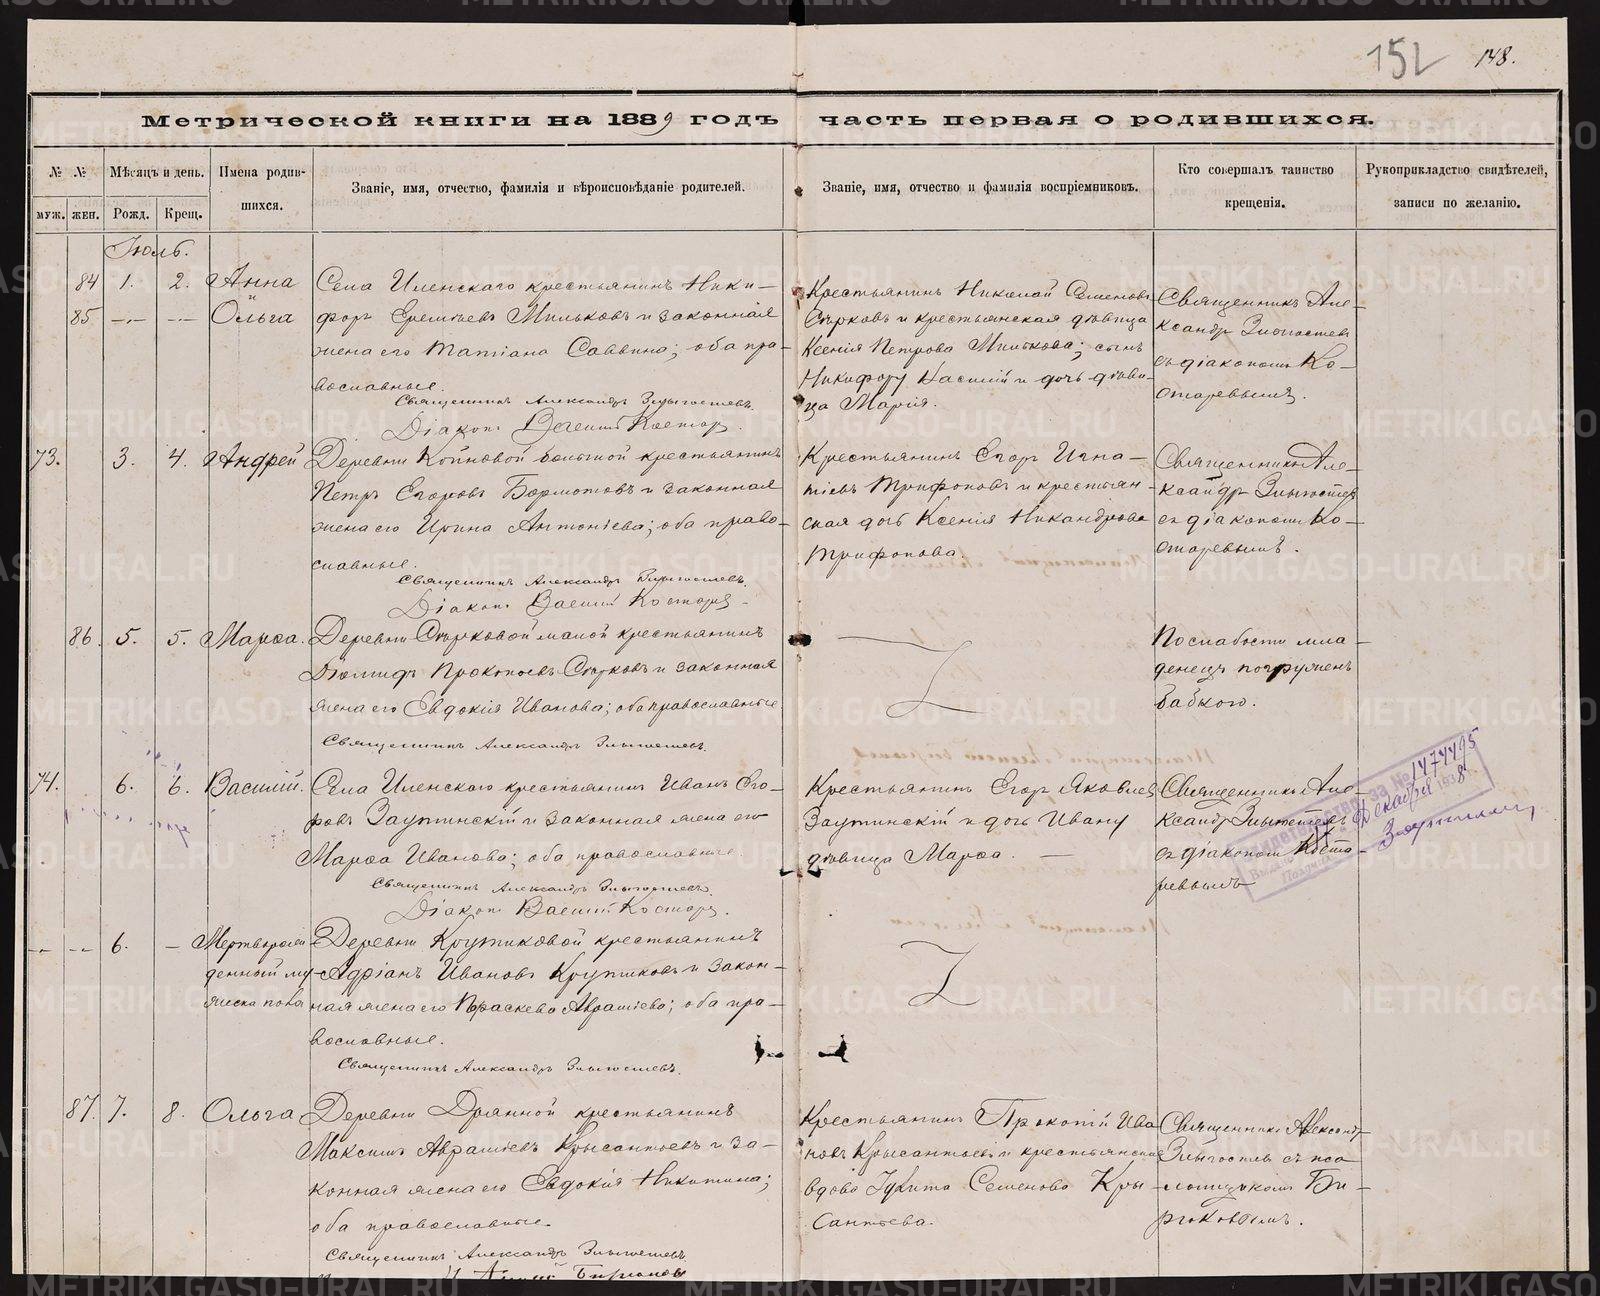 152 148.
Метрической книги на 1889 годъ часть первая о родившихся.
№ № Мѣсяцъ и день. Имена родив-шихся. Званіе, имя, отчество, фамилія и вѣроисповѣданіе родителей. Званіе, имя, отчество и фамилія воспріемниковъ. Кто совершалъ таинство крещенія. Рукоприкладство свидѣтелей, записи по желанію.
муж. жен. Рожд. Крещ.
Іюль.
84 1. 2. Анна
и
85 Ольга
Села Иленскаго крестьянинъ Ники-
форъ Ермьевъ Мильковъ и законная
жена его Татіана Саввина; оба пра-
вославные.
Священникъ Александръ Злыгостевъ.
Діаконъ Василій Костаревъ.
Крестьянинъ Николай Семеновъ
Сѣрковъ и крестьянская дѣвица
Ксенія Петрова Милькова; сынъ
Никифору Василій и дочь дѣви-
ца Марія.
Священникъ Але-
ксандръ Злыгостевъ
съ діакономъ Ко-
старевымъ.
73. 3. 4. Андрей
Деревни большой крестьянинъ
Петръ Егоровъ Бормотовъ и законная
жена его Ирина Антоніева; оба право-
славные.
Священникъ Александръ Злыгостевъ.
Діаконъ Василій Костаревъ
Крестьянинъ Егоръ Игна-
тіевъ Трифоновъ и крестьян-
ская дочь Ксенія Никандрова
Трифонова.
Священникъ Але-
ксандръ Злыгостевъ
съ діакономъ Ко-
старевымъ.
86. 5. 5. Марѳа.
Деревни Сѣрковой малой крестьянинъ
Діомидъ Прокопьевъ Сѣрковъ и законная
жена его Евдокія Иванова; оба православные
Священникъ Александръ Злыгостевъ.
По слабости мла-
денецъ погруженъ
бабкою.
74. 6. 6. Василій.
Села Иленскаго крестьянинъ Иванъ Его-
ровъ Заутинскій и законная жена его
Марѳа Иванова; оба православные
Священникъ Александръ Злыгостевъ.
Діаконъ Василій Костаревъ.
Крестьянинъ Егоръ Яковлевъ
Заутинскій и дочь Ивану
дѣвица Марѳа.
Священникъ Але-
ксандръ Злыгостевъ
съ діакономъ Коста-
ревымъ
1474495
Декабря 1938
6. Мертворож-
денный му-
жеска пола
Деревни Крутиковой крестьянинъ
Адріанъ Ивановъ Крутиковъ и закон-
ная жена его Параскева Авраміева; оба пра-
вославные.
Священникъ Александръ Злыгостевъ.
87. 7. 8. Ольга
Деревни Дрянной крестьянинъ
Максимъ Авраміевъ Крысантьевъ и за-
конная жена его Евдокія Никитина;
оба православные.
Священникъ Александръ Злыгостевъ
Крестьянинъ Прокопій Ива
новъ Крысантьевъ и крестьянская
вдова Улита Семенова Кры-
сантьева.
Священникъ Александръ
Злыгостевъ съ пса
ломщикомъ Би-
рюковымъ.
METRIKI.GASO-URAL.RU